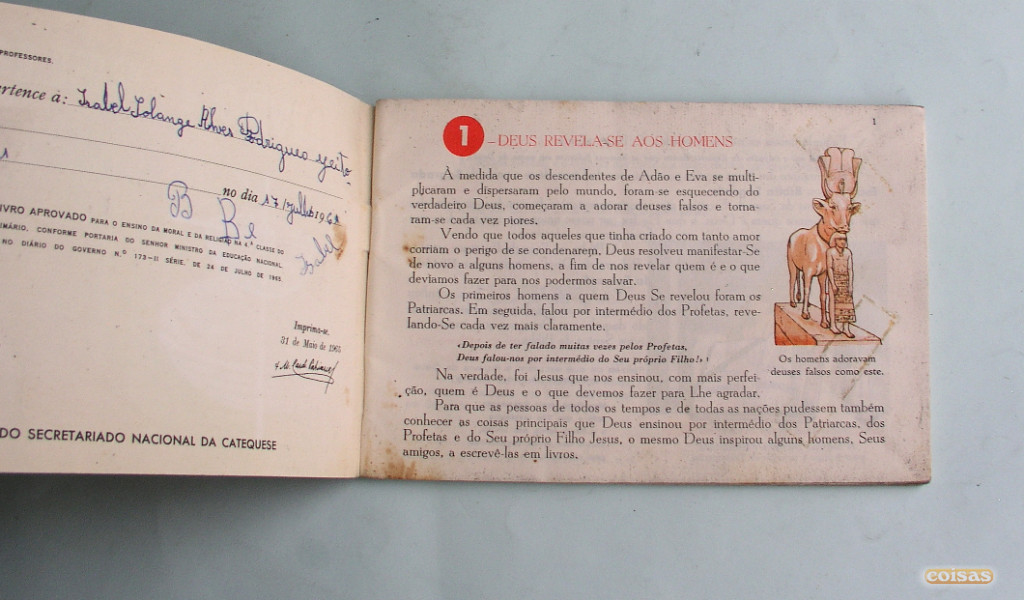 PROFESSORES.
ertence à: Isabel Solange Alves Rodrigues
no dia 17 Julho 196
B Be
Isabel
IVRO APROVADO PARA O ENSINO DA MORAL E DA RELIGIÃO NA 4.ª CLASSE DO
IMÁRIO, CONFORME PORTARIA DO SENHOR MINISTRO DA EDUCAÇÃO NACIONAL
NO DIÁRIO DO GOVERNO N.º 173-II SÉRIE, DE 24 DE JULHO DE 1965.
Imprima-se.
31 de Maio de 1965
DO SECRETARIADO NACIONAL DA CATEQUESE
1
1 – DEUS REVELA-SE AOS HOMENS
À medida que os descendentes de Adão e Eva se multi-
plicaram e dispersaram pelo mundo, foram-se esquecendo do
verdadeiro Deus, começaram a adorar deuses falsos e torna-
ram-se cada vez piores.
Vendo que todos aqueles que tinha criado com tanto amor
corriam o perigo de se condenarem, Deus resolveu manifestar-Se
de novo a alguns homens, a fim de nos revelar quem é e o que
devíamos fazer para nos podermos salvar.
Os primeiros homens a quem Deus Se revelou foram os
Patriarcas. Em seguida, falou por intermédio dos Profetas, reve-
lando-Se cada vez mais claramente.
«Depois de ter falado muitas vezes pelos Profetas,
Deus falou-nos por intermédio do Seu próprio Filho!» ¹
Na verdade, foi Jesus que nos ensinou, com mais perfei-
ção, quem é Deus e o que devemos fazer para Lhe agradar.
Para que as pessoas de todos os tempos e de todas as nações pudessem também
conhecer as coisas principais que Deus ensinou por intermédio dos Patriarcas, dos
Profetas e do Seu próprio Filho Jesus, o mesmo Deus inspirou alguns homens, Seus
amigos, a escrevê-las em livros.
Os homens adoravam
deuses falsos como este.
coisas